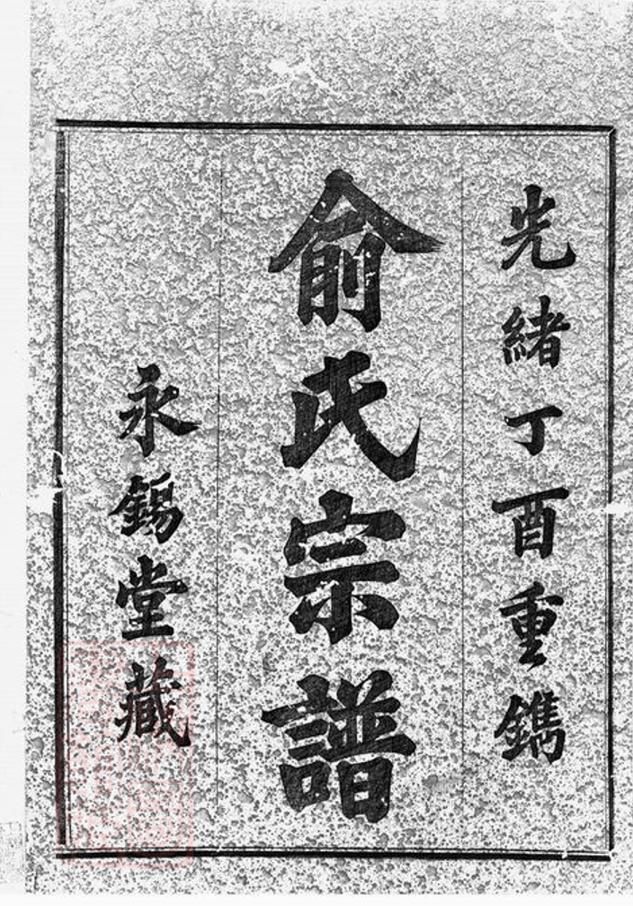 光緒丁酉重鐫
俞氏宗譜
永錫堂藏